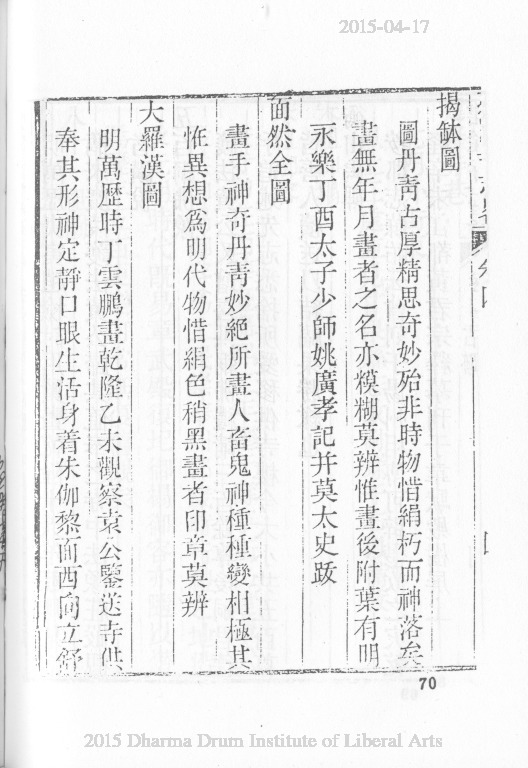 2015-04-17
揭缽圖
圖丹靑古厚精思奇妙殆非時物惜絹朽而神落矣
畫無年月畫者之名亦糢糊莫辨惟畫後附葉有明
永樂丁酉太子少師姚廣孝記并莫太史跋
面然全圖
畫手神奇丹靑妙絕所畫人畜鬼神種種變相極其
恠異想爲明代物惜絹色稍黑畫者印章莫辨
大羅漢圖
明萬歷時丁雲鵬畫乾隆乙未觀察袁公鑒送寺供
奉其形神定靜口眼生活身着朱伽黎面西向立舒
70
2015 Dharma Drum Institute of Liberal Arts